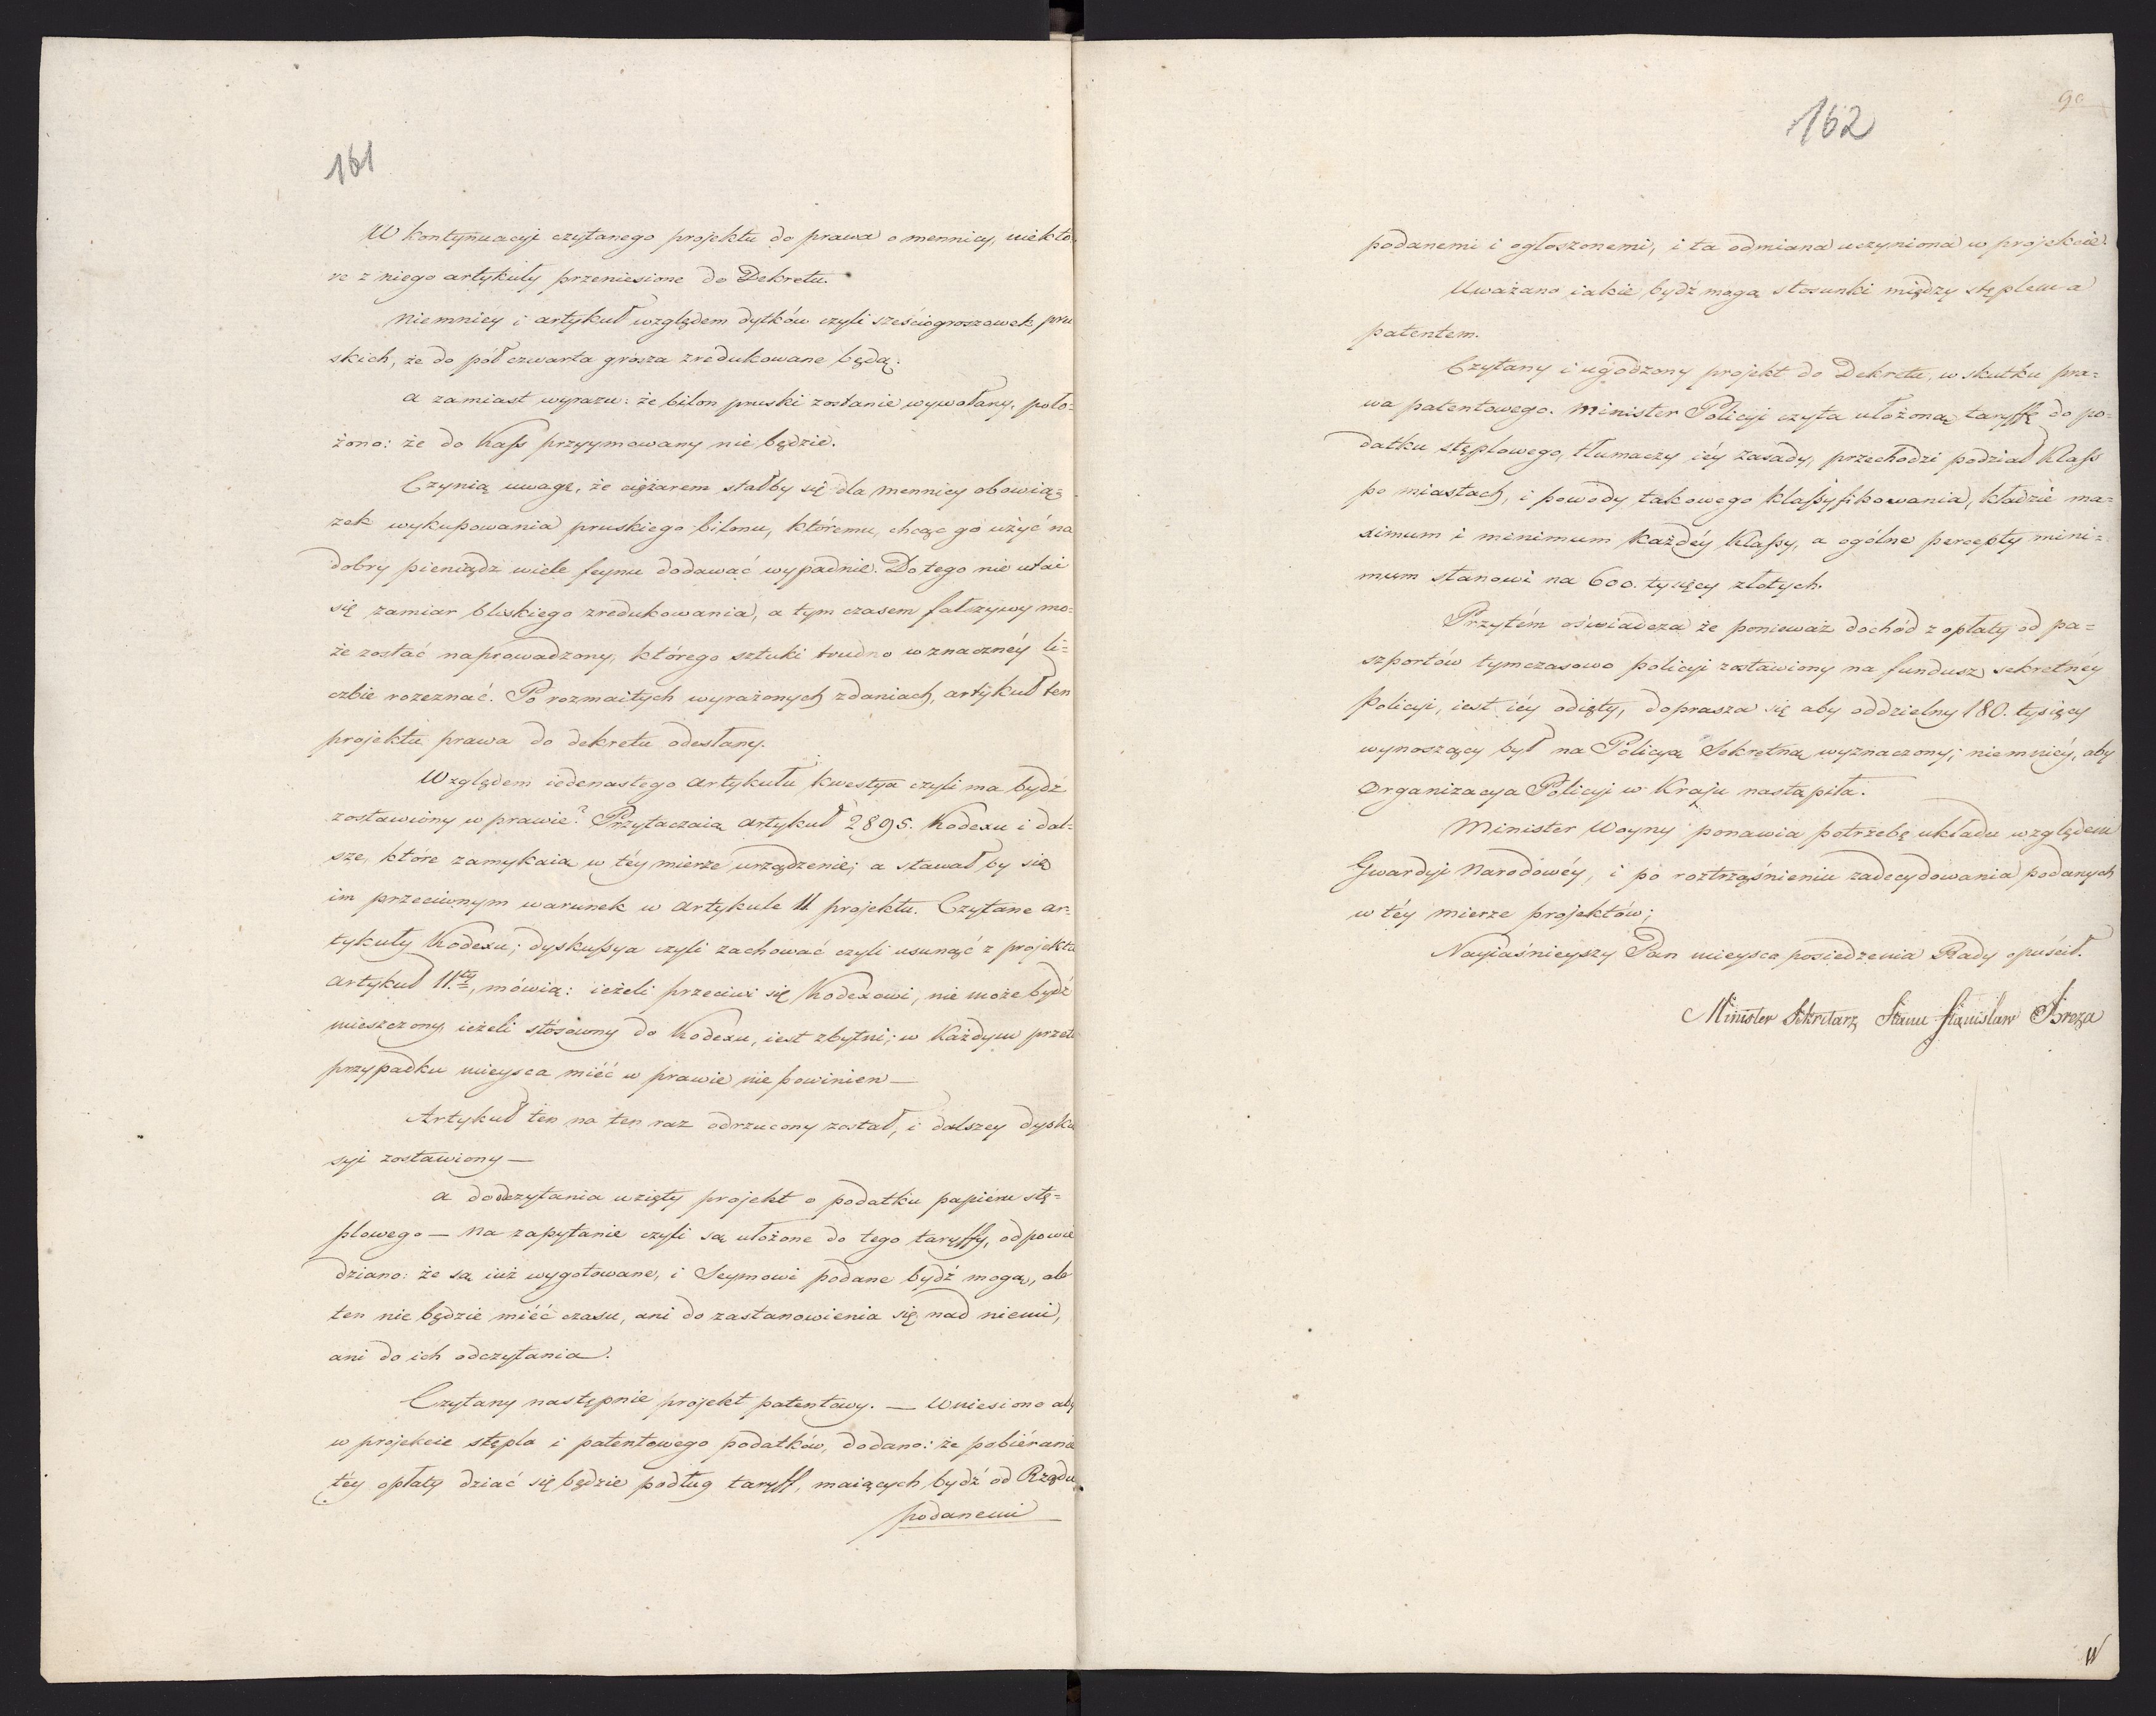 161
W kontynuacyi czytanego projektu do prawa o mennicy, niekto-
re z niego artykuły przeniesione do Dekretu.
Niemniey i artykuł względem dytków czyli sześciogroszowek pru
skich, że do pół czwarta grosza zredukowane będą:
a zamiast wyrazu: że bilon pruski zostanie wywołany, poło=
żono: że do Kass przyymowany nie będzie.
Czynią uwagę, że ciężarem stałby się dla mennicy obowią=
zek wykupowania pruskiego bilonu, któremu, chcąc go użyć na
dobry pieniądz wiele feynu dodawać wypadnie. Do tego nie utai
się zamiar bliskiego zredukowania, a tym czasem fałszywy mo=
że zostać naprowadzony, którego sztuki trudno w znacznéy li=
czbie rozeznać. Po rozmaitych wyrażonych zdaniach, artykuł ten
projektu prawa do dekretu odesłany.
Względem iedenastego artykułu kwestya czyli ma bydź
zostawiony w prawie? Przytaczaią artykuł 2895. Kodexu i dal=
sze, które zamykaią w téy mierze urządzenie; a stawał by się
im przeciwnym warunek w artykule 11 projektu. Czytane ar=
tykuły Kodexu; dyskussya czyli zachować czyli usunąć z projektu
artykuł 11.ty, mówią: ieżeli przeciwi się Kodexowi, nie może bydź
mieszczony, ieżeli stósowny do Kodexu, iest zbytni; w każdym przeto
przypadku mieysca miéć w prawie nie powinien —
Artykuł ten na ten raz odrzucony został, i dalszey dysku
syi zostawiony —
a do odczytania wzięty projekt o podatku papiéru stę=
plowego — Na zapytanie czyli są ułożone do tego taryffy, odpowie
dziano: że są iuż wygotowane, i Seymowi podane bydź mogą, ale
ten nie będzie miéć czasu, ani do zastanowienia się nad niemi,
ani do ich odczytania.
Czytany następnie projekt patentowy. — Wniesiono aby
w projekcie stępla i patentowego podatków, dodano: że pobiéranie
téy opłaty dziać się będzie podług taryff, maiących bydź od Rządu
podanemi
162
90
podanemi i ogłoszonemi, i ta odmiana uczyniona w projekcie.
Uważano iakie bydź mogą stosunki między stęplem a
patentem.
Czytany i ugodzony projekt do Dekretu, w skutku pra=
wa patentowego. Minister Policyi czyta ułożoną taryffę do po=
datku stęplowego, tłumaczy iéy zasady, przechodzi podział Klass
po miastach, i powody takowego klassyfikowania, kładzie ma=
ximum i minimum każdéy Klassy, a ogólne percepty mini=
mum stanowi na 600. tysięcy złotych.
Przytém oświadcza że ponieważ dochód z opłaty od pa=
szportów tymczasowo policyi zostawiony na fundusz sekretnéy
Policyi, iest iéy odięty, doprasza się aby oddzielny 180. tysięcy
wynoszący był na Policyą Sekretną wyznaczony; niemniéy, aby
Organizacya Policyi w Kraju nastąpiła.
Minister Woyny ponawia potrzebę układu względem
Gwardyi Narodowéy, i po roztrząśnieniu zadecydowania podanych
w téy mierze projektów;
Nayiaśnieyszy Pan mieysce posiedzenia Rady opuścił.
Minister Sekretarz Stanu Stanisław Breza
W